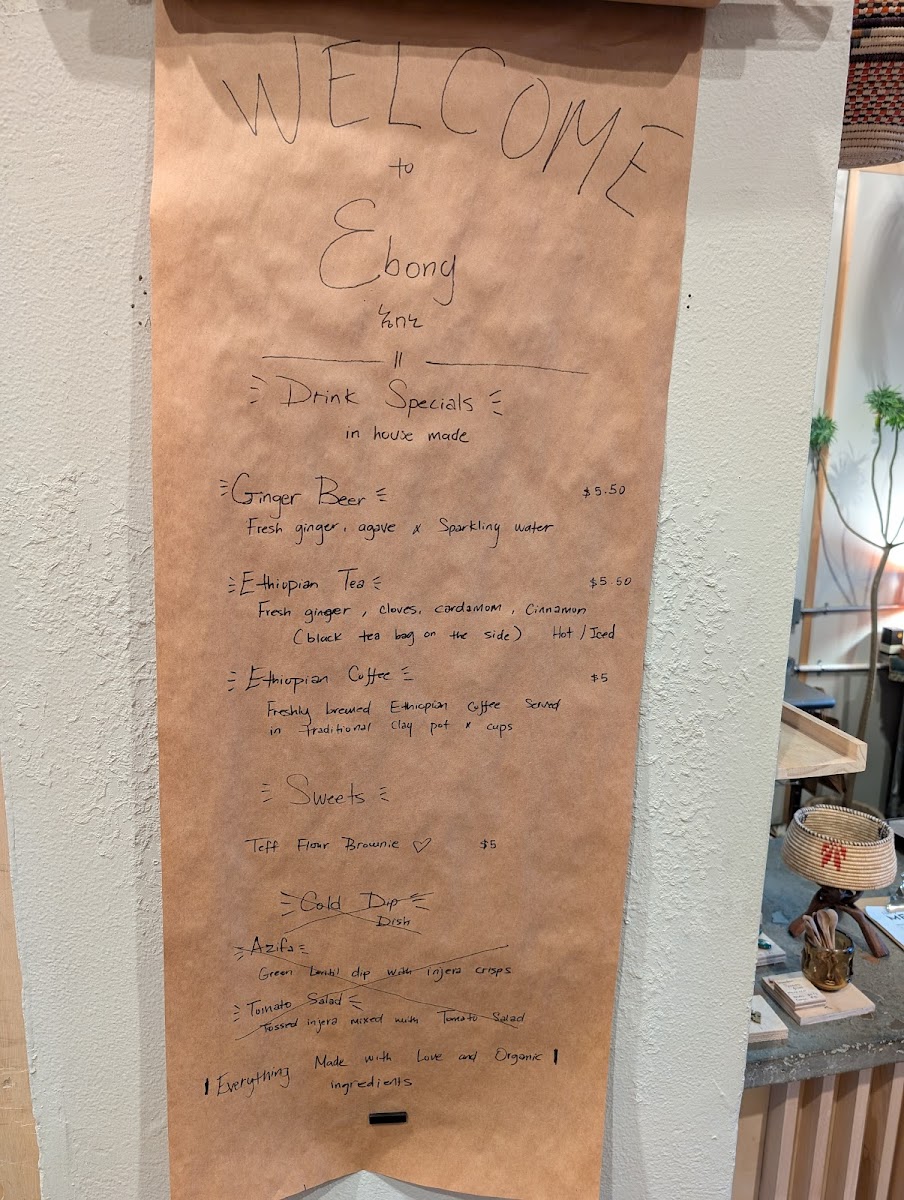 WELCOME
to
Ebony
ኢቦኒ
Drink Specials
in house made
Ginger Beer $5.50
Fresh ginger, agave x Sparkling water
Ethiopian Tea $5.50
Fresh ginger, cloves, cardamom, Cinnamon
(black tea bag on the side) Hot / Iced
Ethiopian Coffee $5
Freshly brewed Ethiopian Coffee Served
in Traditional Clay pot x cups
Sweets
Teff Flour Brownie ♡ $5
Cold Dip
Dish
Azifa
Green Lentil dip with injera crisps
Tomato Salad
Tossed injera mixed with Tomato Salad
Everything Made with Love and Organic
ingredients